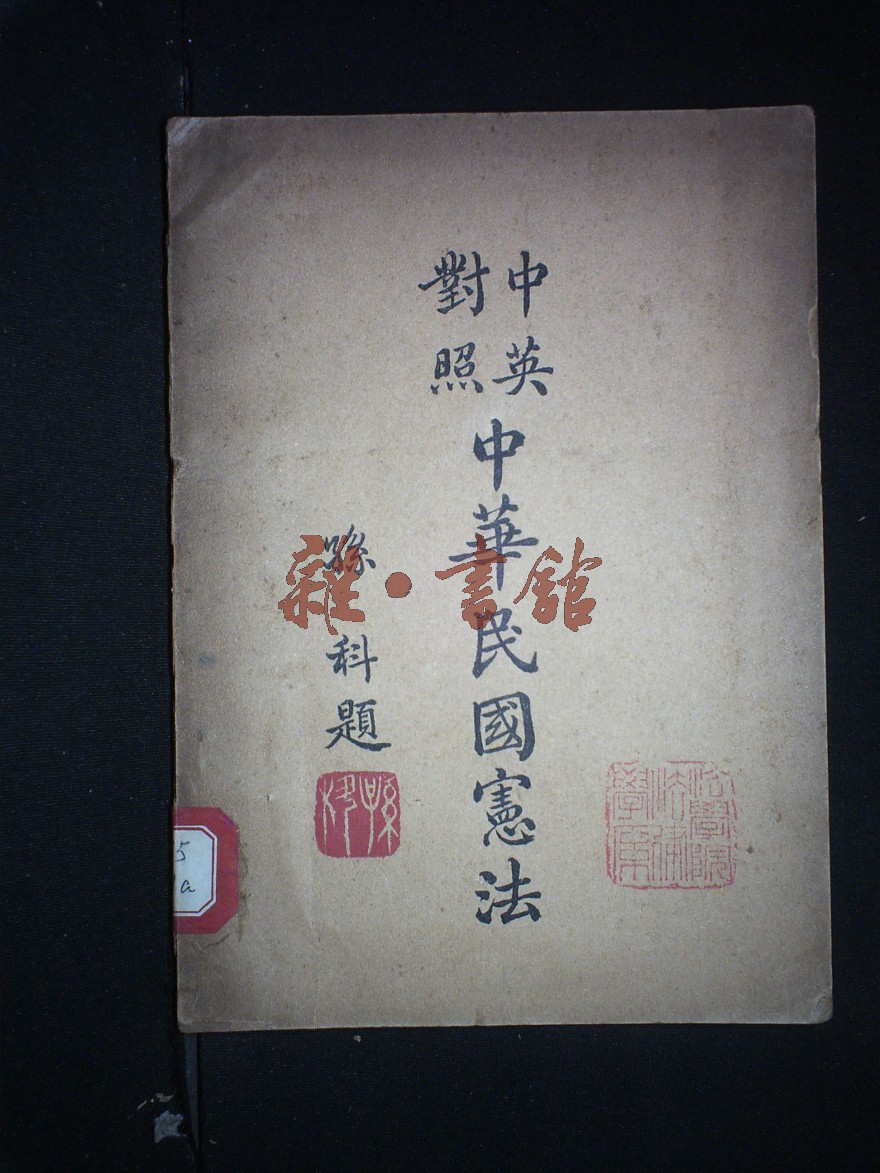 中英
對照
中華民國憲法
孫科題
雜·書館
5
a